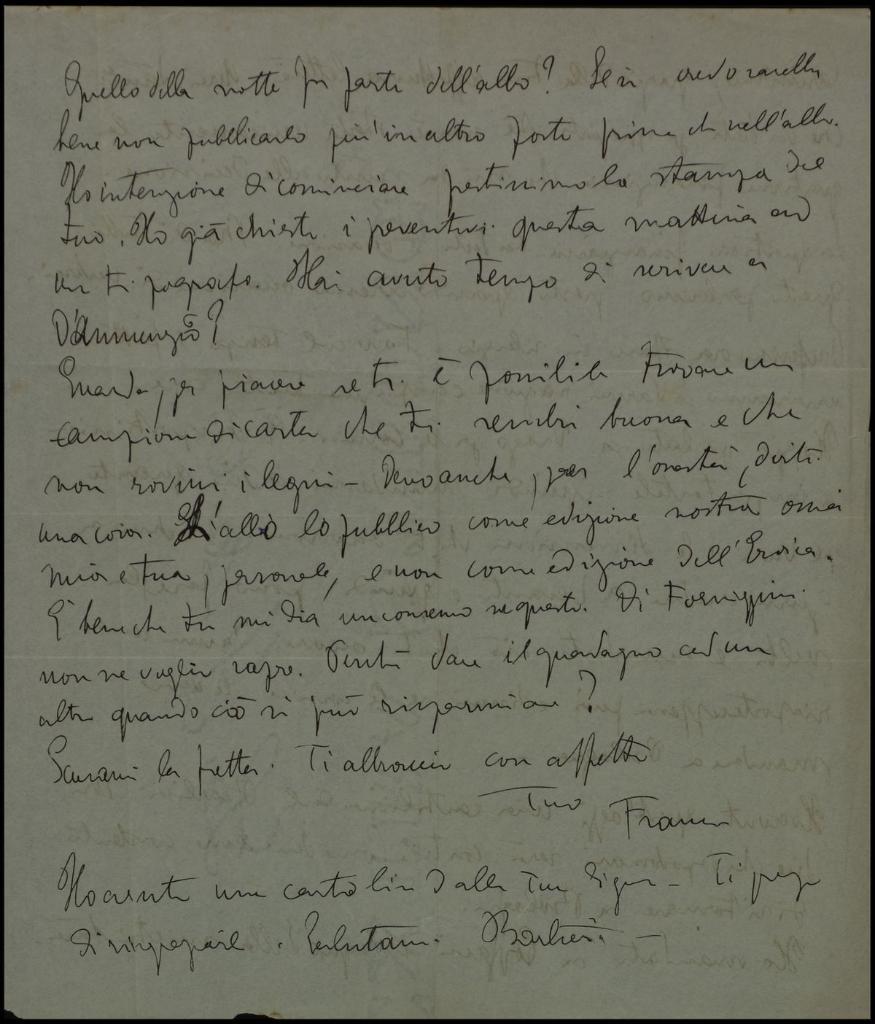 Quello della notte fa parte dell'albo? Se sì credo sarebbe
bene non pubblicarlo più in altro posto prima che nell'albo.
Ho intenzione di cominciare prestissimo la stampa del
tuo. Ho già chiesto i preventivi questa mattina ad
un tipografo. Hai avuto tempo di scrivere a
D'Annunzio?
Guarda, per piacere se ti è possibile trovare un
campione di carta che ti sembri buona e che
non rovini i legni – Devo anche, per l'onestà, dirti
una cosa. L'albo lo pubblico come edizione nostra
mia e tua, personale, e non come edizione dell'Eroica.
È bene che tu mi dia un consenso a questo. Di Formiggini
non ne voglio sapere. Perchè dare il guadagno ad un
altro quando ciò si può risparmiare?
Scusami la fretta. Ti abbraccio con affetto
Tuo
Franco
Ho avuto una cartolina dalla tua Signora – Ti prego
di ringraziarla. Salutami Barbieri –